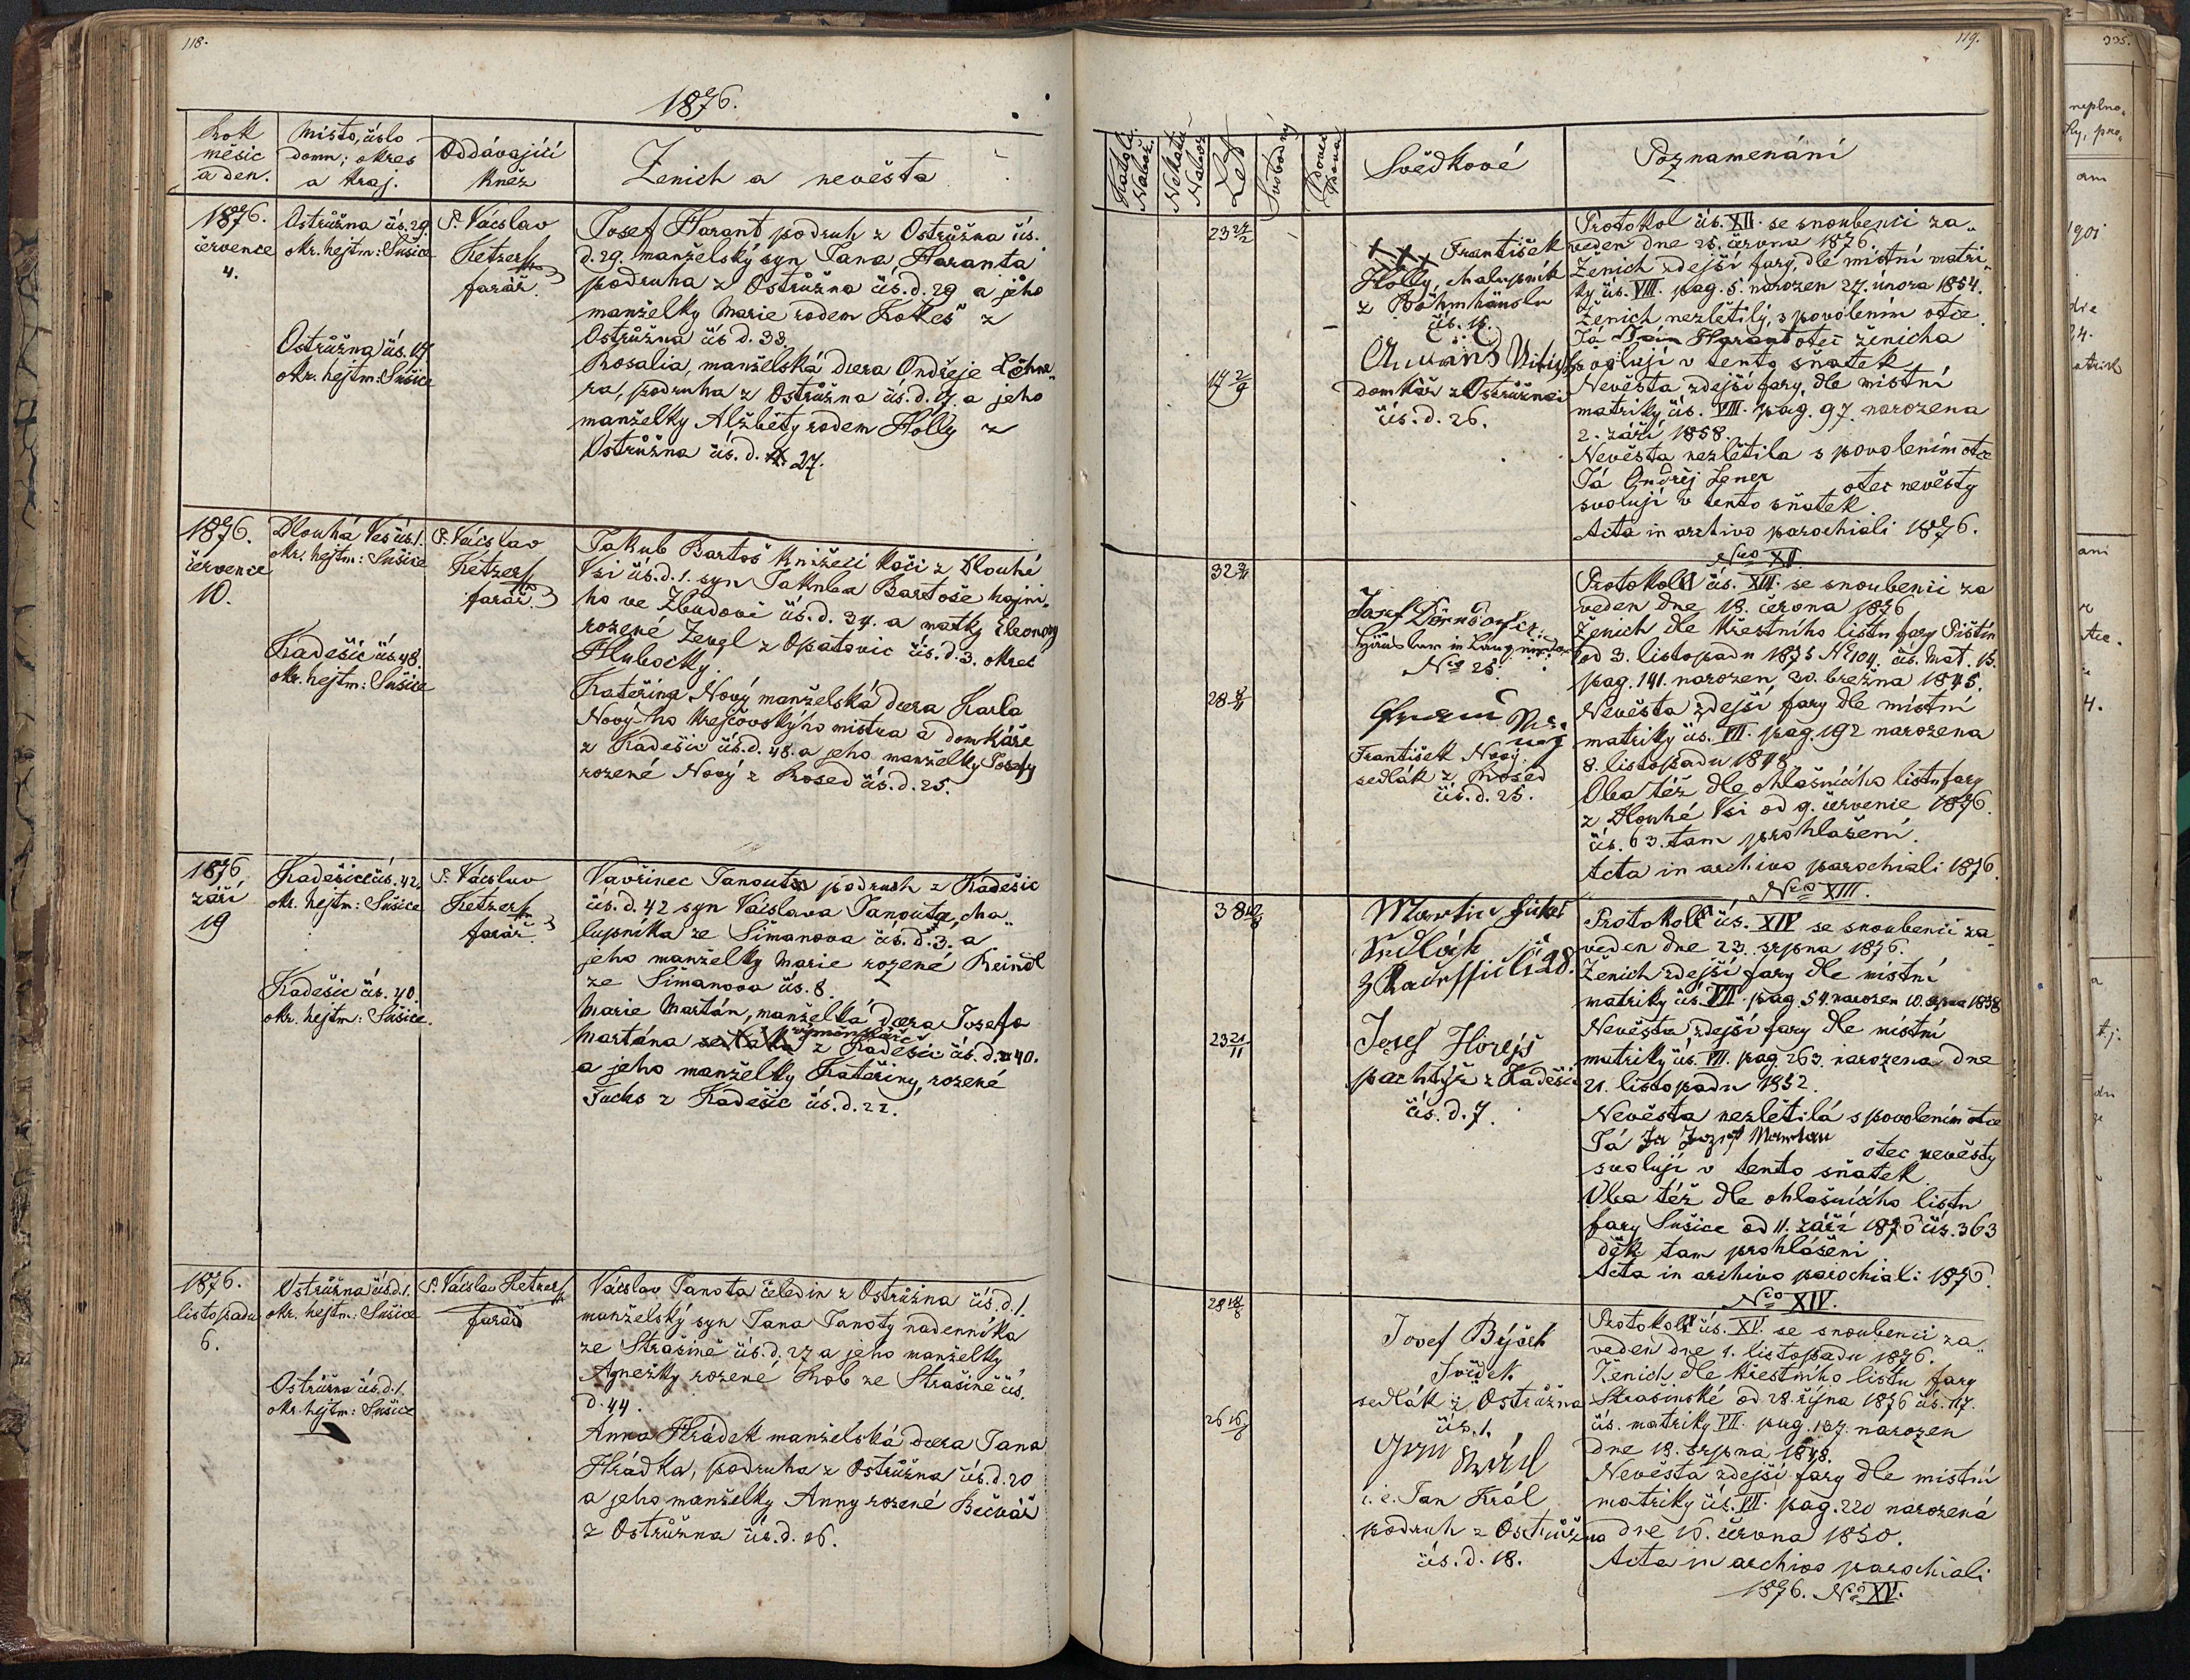 118.
1876.
Rok
měsíc
a den.
Místo, číslo
domu; okres
a kraj.
Oddávající
kněz
Ženich a nevěsta
1876.
července
4.
Ostrůžna čís. 29.
okr. hejtm: Sušice
Ostrůžna čís. 17
okr. hejtm: Sušice
P. Václav
Ketzer
farář.
Josef Harant podruh z Ostrůžna čís.
d. 29. manželský syn Jana Haranta
podruha z Ostrůžna čís. d. 29 a jeho
manželky Marie rodem Kokeš z
Ostrůžna čís d. 33.
Rosalia, manželská dcera Ondřeje Lehne„
ra, podruha z Ostrůžna čís. d. 17. a jeho
manželky Alžběty rodem Holly z
Ostrůžna čís. d. 27.
1876.
července
10.
Dlouhá Ves čís. 1.
okr. hejtm: Sušice
Kadešic čís. 48.
okr. hejtm: Sušice
P. Václav
Ketzer
farář.
Jakub Bartoš knížecí kočí z Dlouhé
Vsi čís. d. 1. syn Jakuba Bartoše hajní„
ho ve Zbudově čís. d. 34. a matky Eleonory
rozené Zevgl z Opatovic čís. d. 3. okres
Hlubocký.
Kateřina Nový manželská dcera Karla
Nový-ho krejčovskýho mistra a domkáře
z Kadešic čís. d. 48. a jeho manželky Josefy
rozené Nový z Rosed čís. d. 25.
1876
září
19
Kadešice čís. 42.
okr. hejtm: Sušice
Kadešic čís. 40.
okr. hejtm: Sušice.
P. Václav
Ketzer
farář.
Vavřinec Janouta podruh z Kadešic
čís. d. 42 syn Václava Janouta, cha„
lupníka ze Šimanova čís. d. 3. a
jeho manželky Marie rozené Reindl
ze Šimanova čís. 8.
Marie Martán, manželská dcera Josefa
výměnkáře
Martána z Kadešic čís. d. 40.
a jeho manželky Kateřiny, rozené
Fuchs z Kadešic čís. d. 22.
1876.
listopadu
6.
Ostrůžna čís. d. 1.
okr. hejtm: Sušice
Ostrůžna čís. d. 1.
okr. hejtm: Sušice
P. Václav Ketzer
farář
Václav Janota čeledín z Ostrůžna čís. d. 1.
manželský syn Jana Janoty nadenníka
ze Strašině čís. d. 27 a jeho manželky
Agnežky rozené Rob ze Strašině čís.
d. 44.
Anna Hrádek manželská dcera Jana
Hrádka, podruha z Ostrůžna čís. d. 20
a jeho manželky Anny rozené Bečvář
z Ostrůžna čís. d. 16.
119.
Katolí.
Nábož.
Nekatol.
Nábož.
Let
Svobodný
Vdovec
Vdova
Svědkové
Poznamenání
23 27/2
17 2/9
+++ František
Holly, chalupník
z Böhmhäusln
čís. 15.
domkář z Ostrůžna
čís. d. 26.
Protokol čís. XII. se snoubenci za„
veden dne 25. června 1876.
Ženich zdejší fary, dle místní matri„
ky čís. VIII. pag. 5. narozen 27. února 1854.
Ženich nezletilý, s povolením otce
Já Jan Harant otec ženicha
svoluji v tento sňatek
Nevěsta zdejší fary, dle místní
matriky čís. VIII. pag. 97 narozena
2. září 1858.
Nevěsta nezletila s povolením otce
Já Ondřej Lener otec nevěsty
svoluji v tento sňatek.
Acta in archivo parochiali 1876.
Nro XII.
28 8/11
No 25.
František Nový
sedlák z Rosed
čís. d. 25.
Protokol čís. XIII. se snoubenci za
veden dne 18. června 1876
Ženich dle křestního listu fary Pištín
od 3. listopadu 1875 No 104. čís. mat. 15.
pag. 141. narozen 30. března 1845.
Nevěsta zdejší fary dle místní
matriky čís. VII. pag. 192 narozena
8. listopadu 1848.
Oba též dle ohlašního listu fary
z Dlouhé Vsi od 9. července 1876.
čís. 63. tam prohlašeni.
Acta in archivo parochiali 1876.
Nro XIII.
38 10/8
23 21/11
Martin
Josef Horejš
pachtýř z Kadešic
čís. d. 7.
Protokol čís. XIV se snoubenci za„
veden dne 23. srpna 1876.
Ženich zdejší fary dle místní
matriky čís. VII. pag. 54. narozen 10. srpna 1838
Nevěsta zdejší fary dle místní
matriky čís. VII. pag. 263. narozena dne
21. listopadu 1852.
Nevěsta nezletilá s povolením otce
Já Ja Jozef Martan otec nevěsty
svoluji v tento sňatek
Oba též dle ohlašního listu
fary Sušice od 11. září 1876 čís. 363
děk. tam prohlášeni
Acta in archivo parochiali 1876.
Nro XIV.
28 18/8
26 16/6
Josef Býček
Svědek
sedlák z Ostrůžna
čís. 1.
i. e. Jan Král
podruh z Ostrůžna
čís. d. 18.
Protokol čís. XV. se snoubenci za„
veden dne 1. listopadu 1876.
Ženich dle křestního listu fary
Strašinské od 28. října 1876 čís. 117.
čís. matriky VII. pag. 137. narozen
dne 18. srpna 1848.
Nevěsta zdejší fary dle místní
matriky čís. VII. pag. 220 narozená
dne 16. června 1850.
Acta in archivo parochiali
1876. No XV.
335.